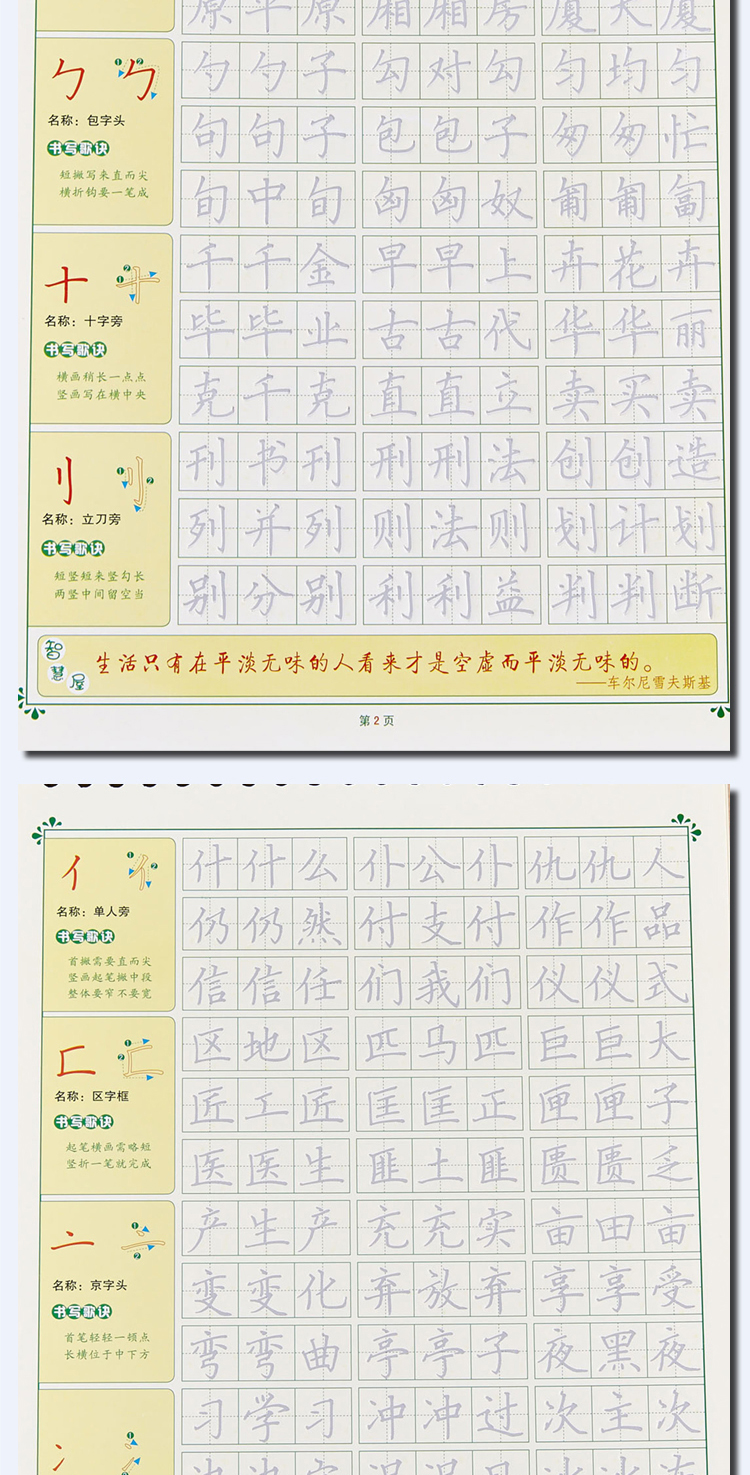 原 平 原 厢 厢 房 厦 大 厦
勹
❶ ❷
名称：包字头
书写歌诀
短撇写来直而尖
横折钩要一笔成
勺 勺 子 勾 对 勾 匀 均 匀
句 句 子 包 包 子 匆 匆 忙
旬 中 旬 匈 匈 奴 匍 匍 匐
十
❷
❶
名称：十字旁
书写歌诀
横画稍长一点点
竖画写在横中央
千 千 金 早 早 上 卉 花 卉
毕 毕 业 古 古 代 华 华 丽
克 千 克 直 直 立 卖 买 卖
刂
❶ ❷
名称：立刀旁
书写歌诀
短竖短来竖勾长
两竖中间留空当
刊 书 刊 刑 刑 法 创 创 造
列 并 列 则 法 则 划 计 划
别 分 别 利 利 益 判 判 断
智慧屋
生活只有在平淡无味的人看来才是空虚而平淡无味的。
——车尔尼雪夫斯基
第2页
亻
❶ ❷
名称：单人旁
书写歌诀
首撇需要直而尖
竖画起笔撇中段
整体要窄不要宽
什 什 么 仆 公 仆 仇 仇 人
仍 仍 然 付 支 付 作 作 品
信 信 任 们 我 们 仪 仪 式
匚
❶
❷
名称：区字框
书写歌诀
起笔横画需略短
竖折一笔就完成
区 地 区 匹 马 匹 巨 巨 大
匠 工 匠 匡 匡 正 匣 匣 子
医 医 生 匪 土 匪 匮 匮 乏
亠
❶
❷
名称：京字头
书写歌诀
首笔轻轻一顿点
长横位于中下方
产 生 产 充 充 实 亩 田 亩
变 变 化 弃 放 弃 享 享 受
弯 弯 曲 亭 亭 子 夜 黑 夜
冫
❶
❷
习 学 习 冲 冲 过 次 主 次